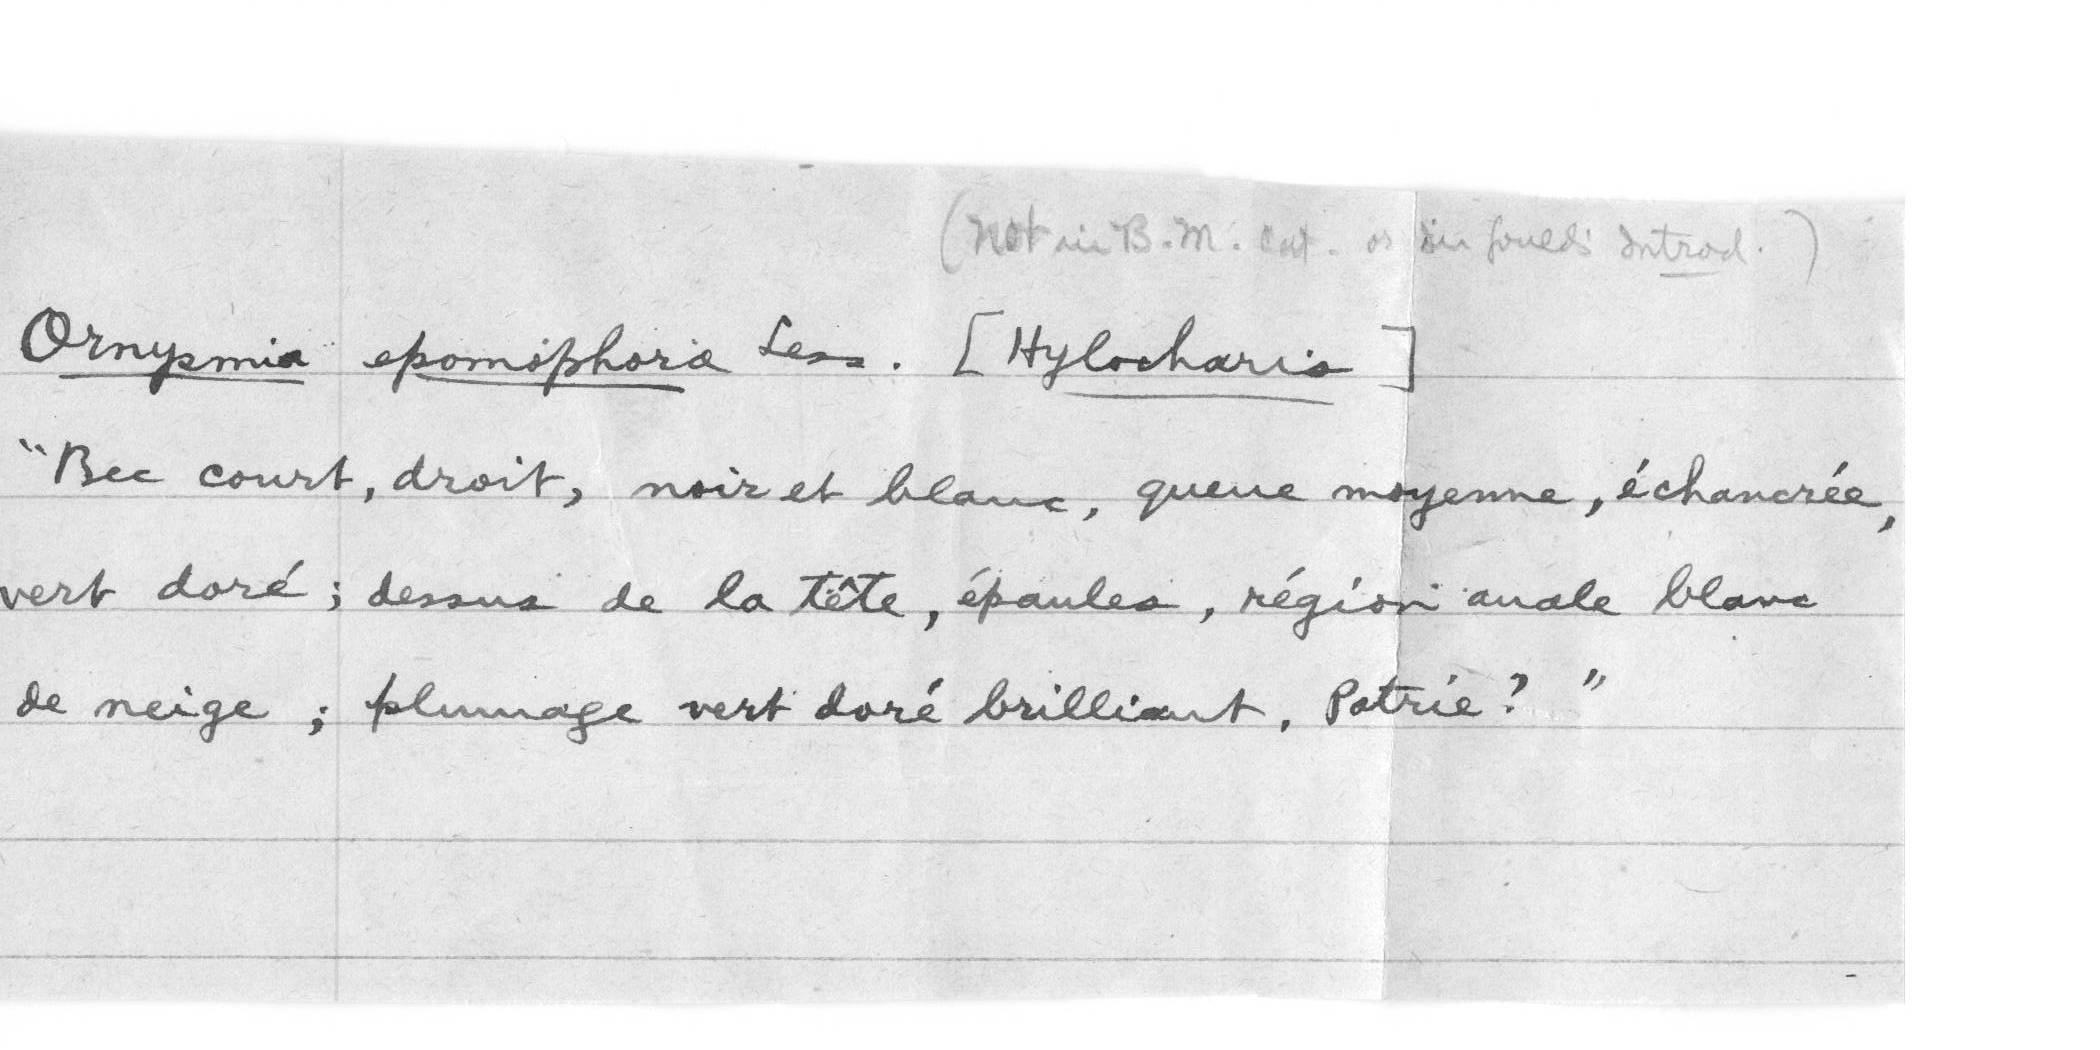 (Not in B.M. Cat. or in Gould's Introd.)
Ornysmia epomophora Less. [Hylocharis]
"Bec court, droit, noir et blanc, queue moyenne, échancrée,
vert doré; dessus de la tête, épaules, région anale blanc
de neige; plumage vert doré brilliant. Patrie?"